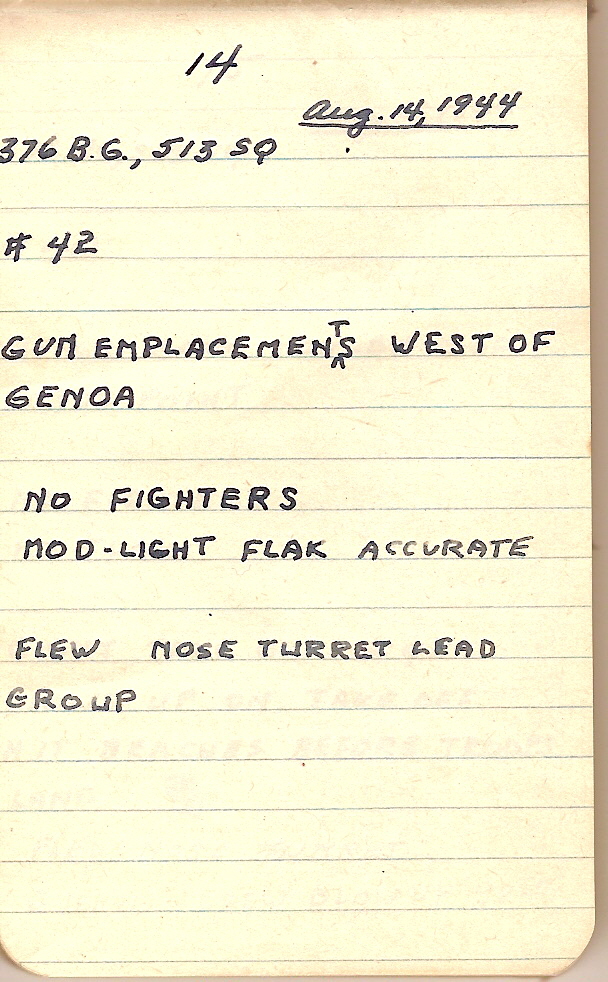 14
Aug. 14, 1944
376 B.G., 513 SQ
# 42
GUN EMPLACEMENTS WEST OF
GENOA
NO FIGHTERS
MOD-LIGHT FLAK ACCURATE
FLEW NOSE TURRET LEAD
GROUP